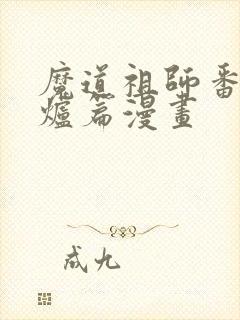 魔道祖師番
爐篇漫畫
成九